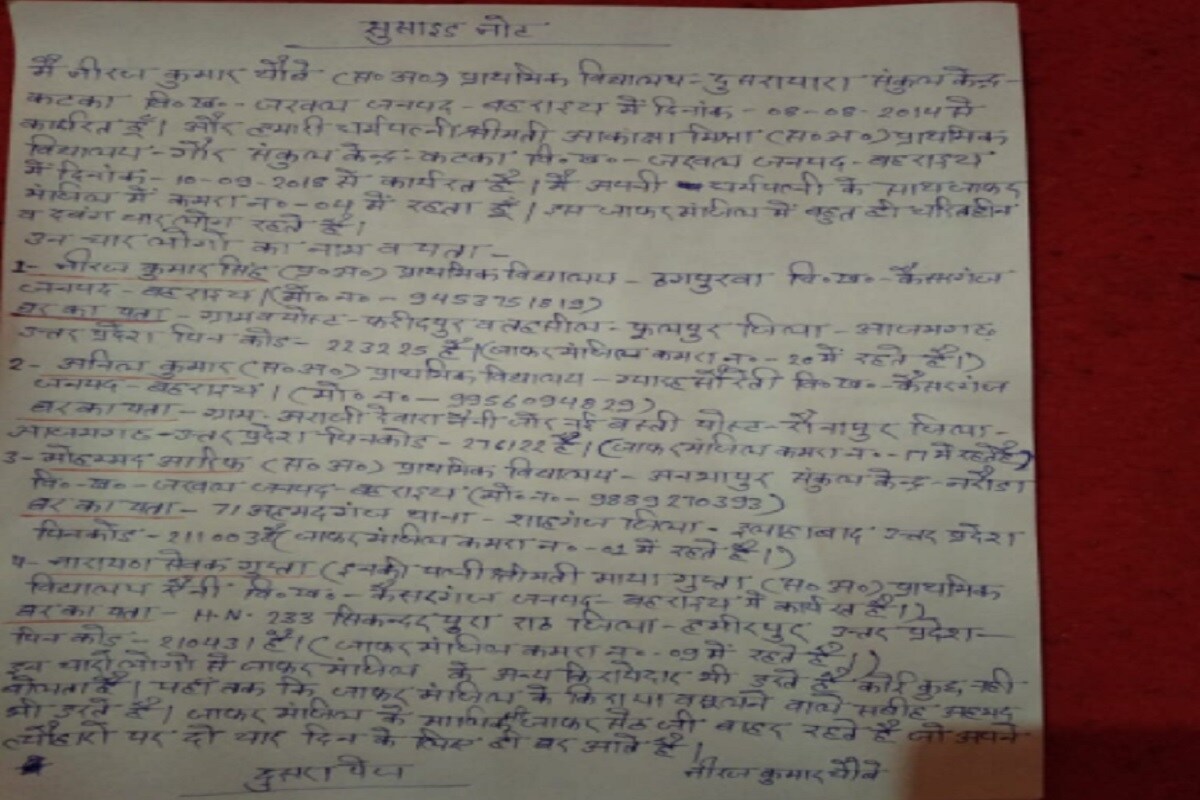 सुसाइड नोट
मैं नीरज कुमार चौबे (स०अ०) प्राथमिक विद्यालय - दुसरापारा संकुल केन्द्र -
कटका वि०ख०- जरवल जनपद - बहराइच में दिनांक - 08-08-2014 से
कार्यरत हूँ। और हमारी धर्मपत्नी श्रीमती आकांक्षा मिश्रा (स०अ०) प्राथमिक
विद्यालय - गौर संकुल केन्द्र - कटका वि०ख०- जरवल जनपद - बहराइच
में दिनांक - 10-09-2018 से कार्यरत है। मैं अपनी धर्मपत्नी के साथ जाफर
मंजिल में कमरा न०-04 में रहता हूँ। इस जाफर मंजिल में बहुत ही चरित्रहीन
व दबंग चार लोग रहते हैं।
उन चार लोगों का नाम व पता -
1- नीरज कुमार सिंह (प्र०अ०) प्राथमिक विद्यालय - ठगपुरवा वि०ख०- कैसरगंज
जनपद - बहराइच। (मो०न०- 9453751819)
घर का पता - ग्राम व पोस्ट - फरीदपुर व तहसील - फूलपुर जिला - आजमगढ़
उत्तर प्रदेश पिन कोड - 223225 है। (जाफर मंजिल कमरा न०- 20 में रहते हैं।)
2- अनिल कुमार (स०अ०) प्राथमिक विद्यालय - ग्यारह सौ रेती वि०ख०- कैसरगंज
जनपद - बहराइच। (मो०न०- 9956094829)
घर का पता - ग्राम - अराजी देवारा नैनी जोर नई बस्ती पोस्ट - रौनापुर जिला -
आजमगढ़ - उत्तर प्रदेश पिनकोड - 276122 है। (जाफर मंजिल कमरा न०- 17 में रहते हैं)
3- मोहम्मद आरिफ (स०अ०) प्राथमिक विद्यालय - संकुल केन्द्र - नरौडा
वि०-ख०- जरवल जनपद - बहराइच (मो०न०- 9889270393)
घर का पता - 71 अहमदगंज थाना - शाहगंज जिला - इलाहाबाद उत्तर प्रदेश
पिनकोड - 211003 है (जाफर मंजिल कमरा न०- 01 में रहते हैं।)
4- नारायण सेवक गुप्ता (इनकी पत्नी श्रीमती माया गुप्ता (स०अ०) प्राथमिक
विद्यालय रैनी वि०ख०- कैसरगंज जनपद - बहराइच में कार्यरत हैं।)
घर का पता - H.N. 233 सिकन्दरपुरा राठ जिला - हमीरपुर उत्तर प्रदेश -
पिन कोड - 210431 है। (जाफर मंजिल कमरा न०- 09 में रहते हैं।)
इन चारो लोगो से जाफर मंजिल के अन्य किरायेदार भी डरते हैं कोई कुछ नहीं
बोलता है। यहाँ तक कि जाफर मंजिल के किराया वसूलने वाले
भी डरते हैं। जाफर मंजिल के मालिक जाफर सेठ जी बाहर रहते हैं जो अपने
त्यौहारो पर दो चार दिन के लिए ही घर आते हैं।
दुसरा पेज
नीरज कुमार चौबे